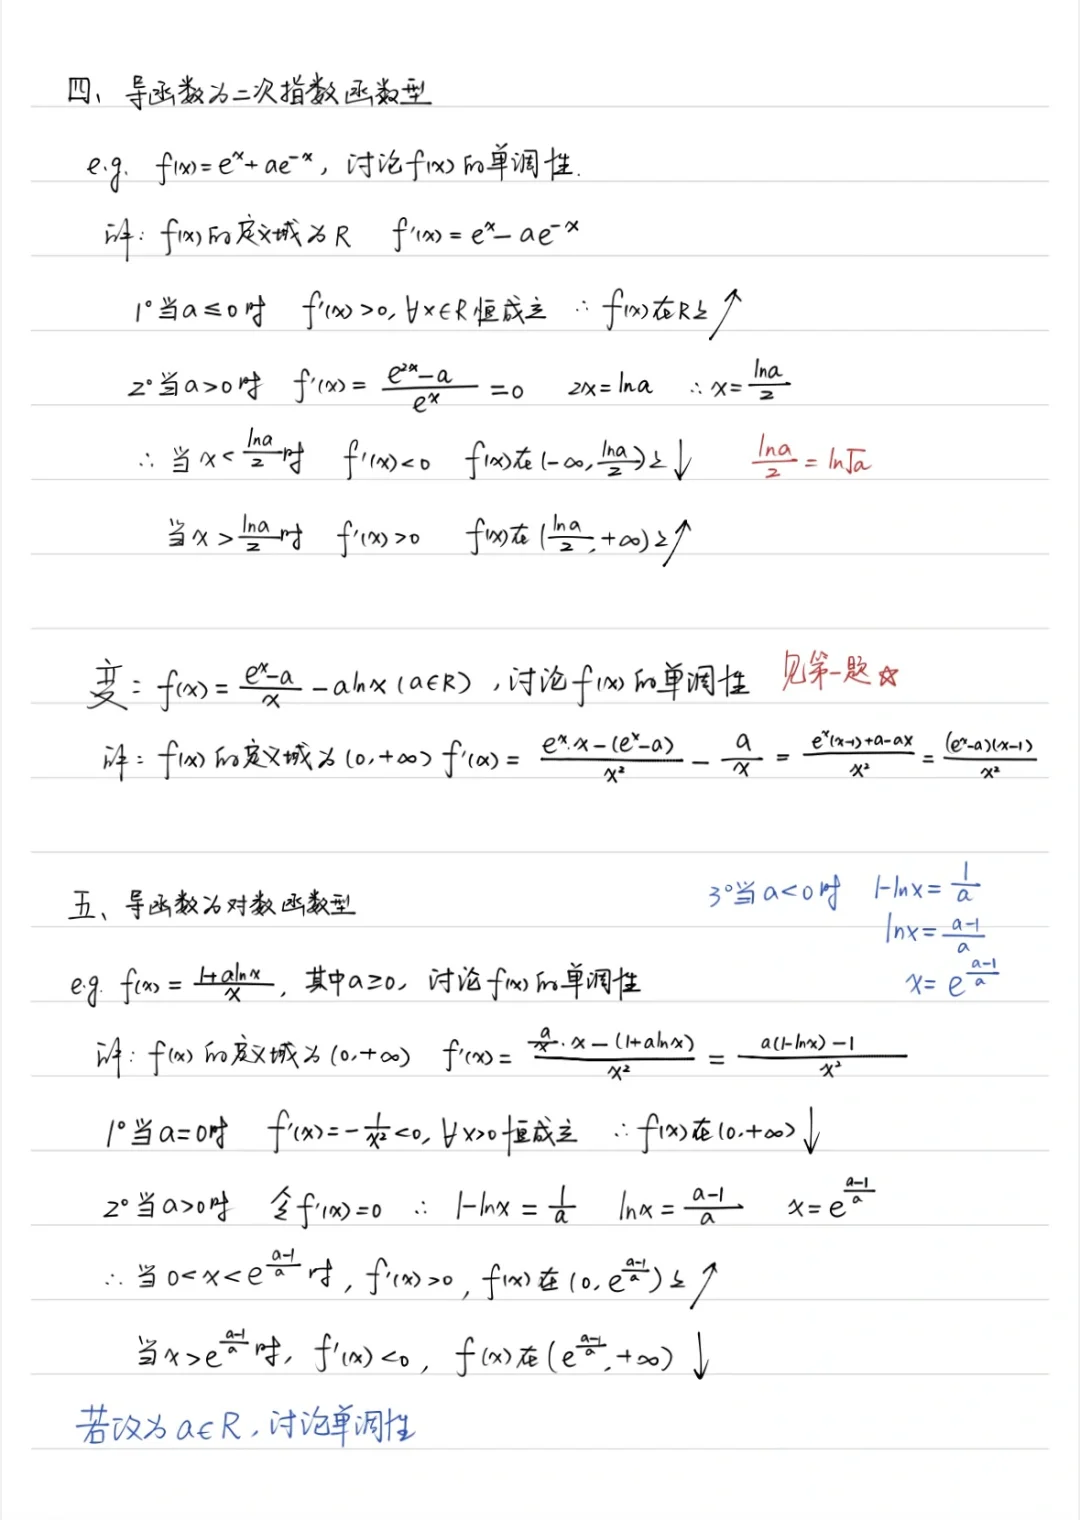 四、导函数为二次指数函数型
e.g. f(x)=eˣ+ae⁻ˣ，讨论f(x)的单调性.
评：f(x)的定义域为R f'(x)=eˣ-ae⁻ˣ
1°当a≤0时 f'(x)>0,∀x∈R恒成立 ∴f(x)在R上↗
2°当a>0时 f'(x)=(e²ˣ-a)/eˣ=0 2x=lna ∴x=lna/2
∴当x<lna/2时 f'(x)<0 f(x)在(-∞,lna/2)上↓ lna/2=ln√a
当x>lna/2时 f'(x)>0 f(x)在(lna/2,+∞)上↗
变：f(x)=(eˣ-a)/x-alnx(a∈R)，讨论f(x)的单调性 见第一题☆
评：f(x)的定义域为(0,+∞) f'(x)=(eˣ·x-(eˣ-a))/x²-a/x=(eˣ(x-1)+a-ax)/x²=((eˣ-a)(x-1))/x²
五、导函数为对数函数型
3°当a<0时 1-lnx=1/a
lnx=(a-1)/a
x=e^((a-1)/a)
e.g. f(x)=(1+alnx)/x，其中a≥0，讨论f(x)的单调性
评：f(x)的定义域为(0,+∞) f'(x)=(a/x·x-(1+alnx))/x²=(a(1-lnx)-1)/x²
1°当a=0时 f'(x)=-1/x²<0,∀x>0恒成立 ∴f(x)在(0,+∞)↓
2°当a>0时 令f'(x)=0 ∴1-lnx=1/a lnx=(a-1)/a x=e^((a-1)/a)
∴当0<x<e^((a-1)/a)时，f'(x)>0，f(x)在(0,e^((a-1)/a))上↗
当x>e^((a-1)/a)时，f'(x)<0，f(x)在(e^((a-1)/a),+∞)↓
若改为a∈R，讨论单调性